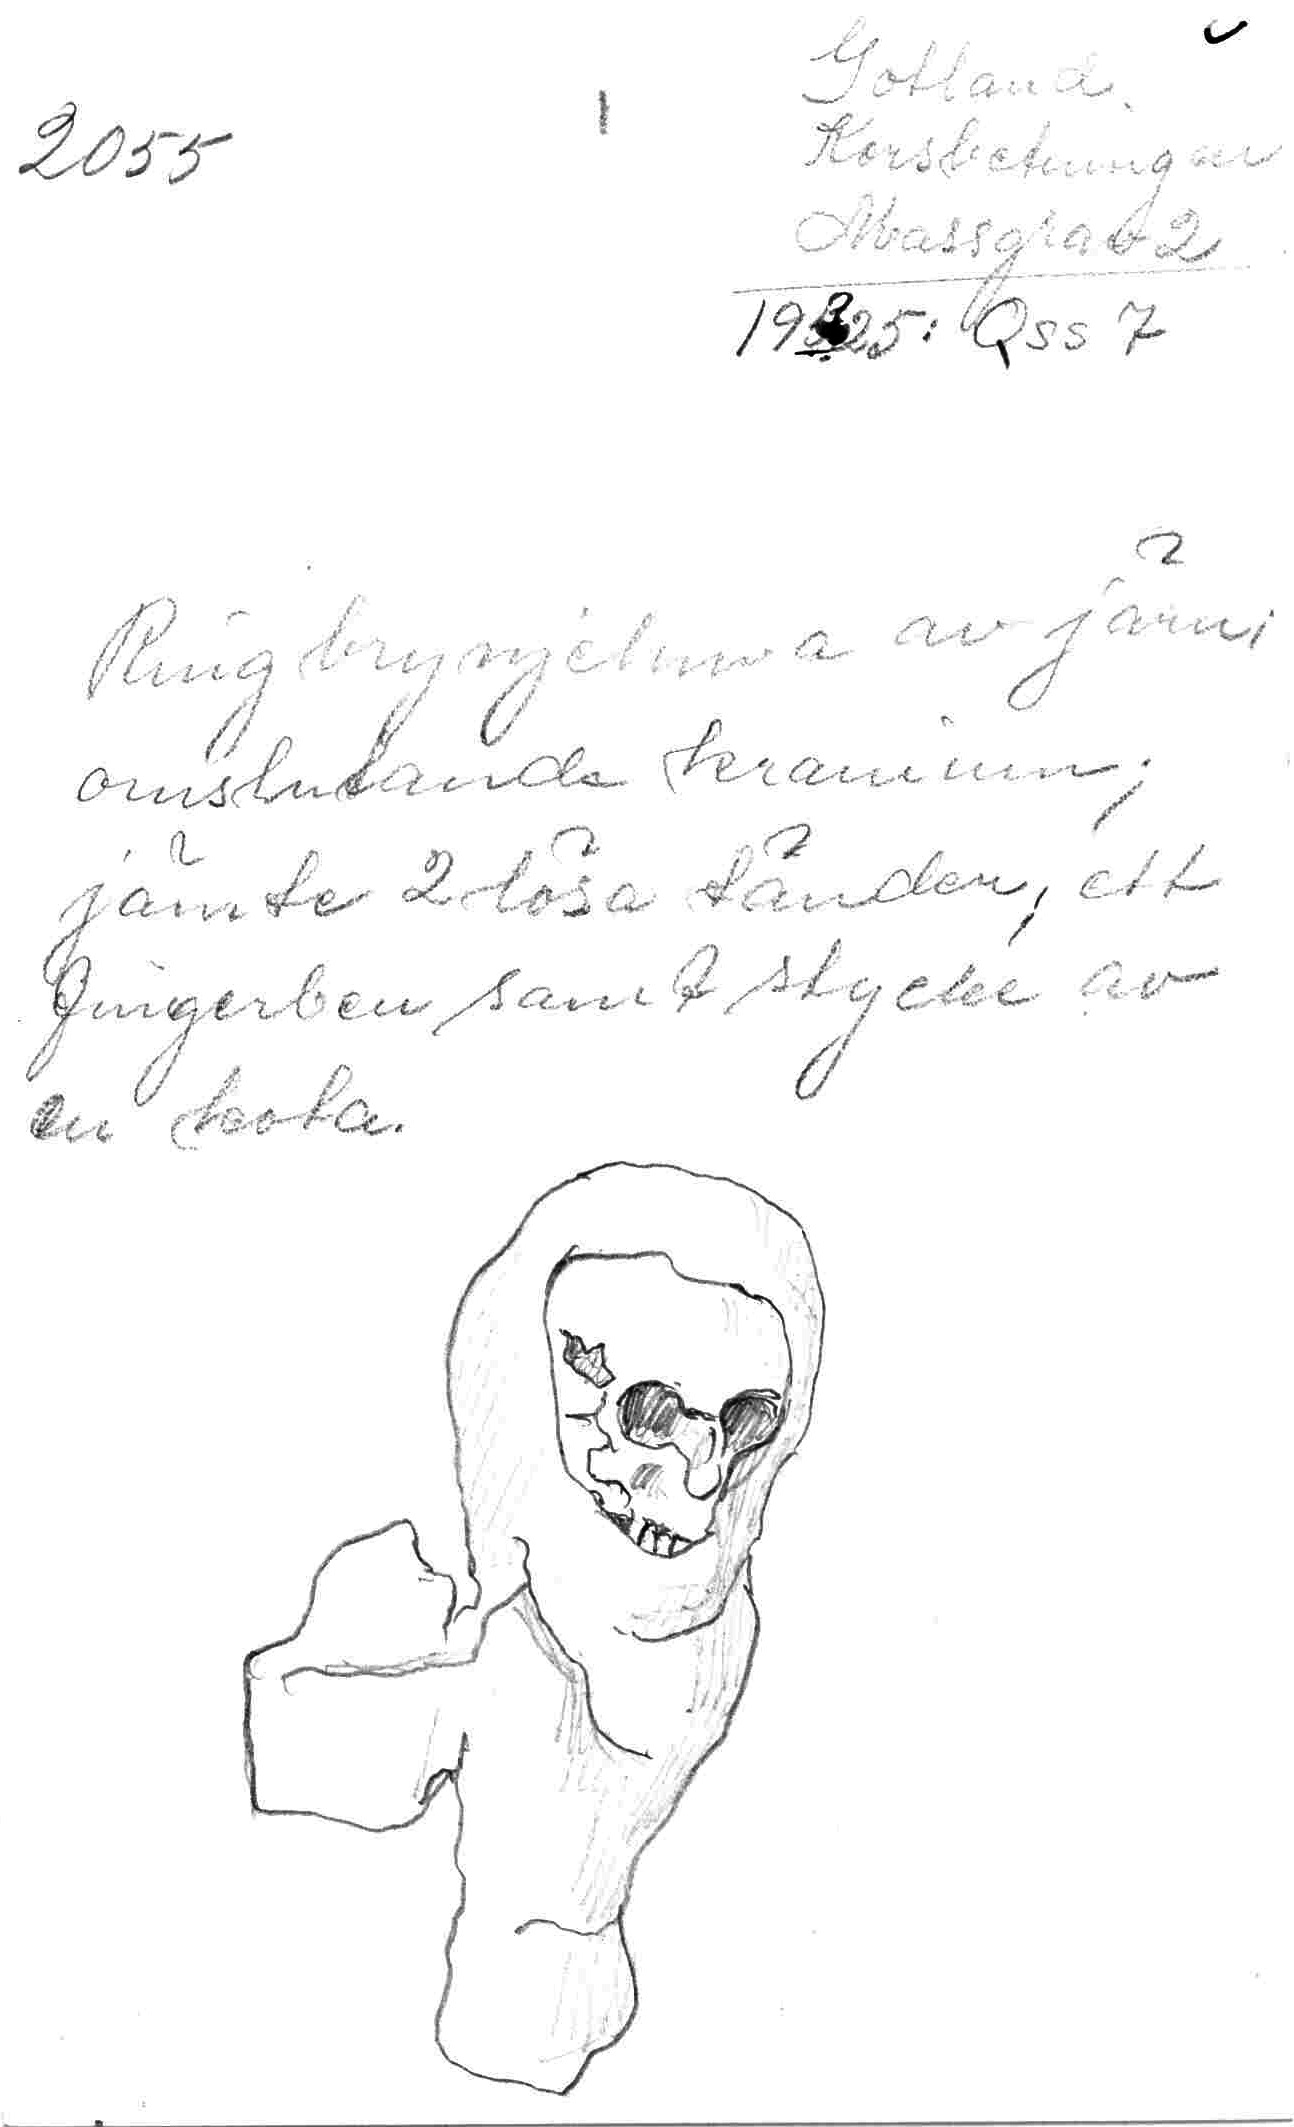 2055
Gotland.
Korsbetningen
Massgrav 2
25: Qss 7
Ringbrynjehuva av järn,
omslutande kranium,
jämte 2 lösa tänder, ett
fingerben samt stycke av
en kota.